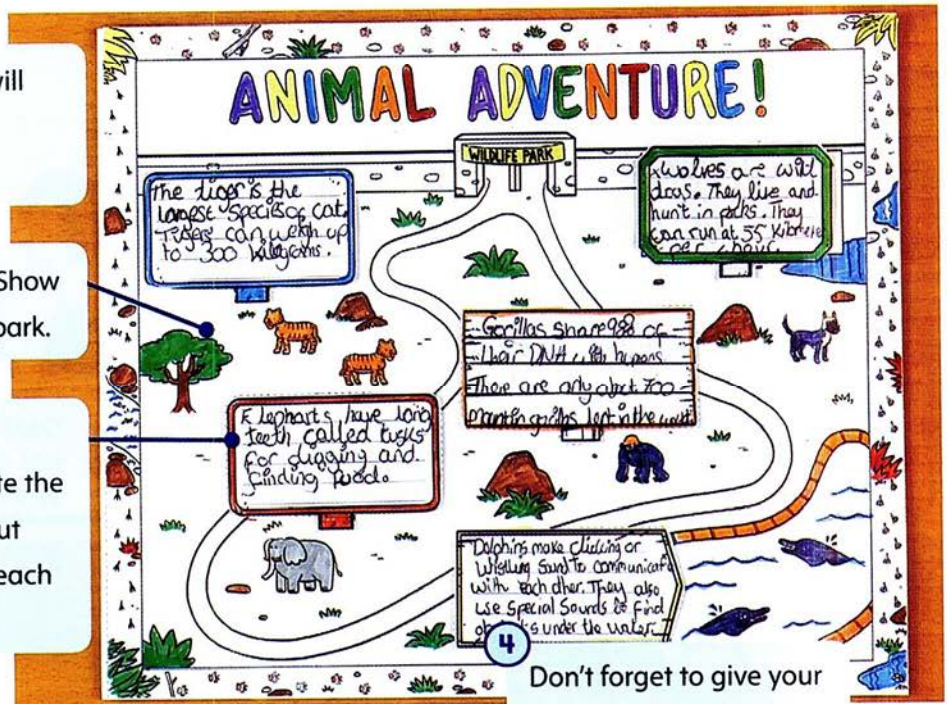 ill
Show
park.
te the
ut
each
ANIMAL ADVENTURE!
WILDLIFE PARK
The tiger is the
largest species of cat.
Tigers can weigh up
to 300 kilograms.
Wolves are wild
dogs. They live and
hunt in packs. They
can run at 55 kilometres
per hour.
Gorillas share 98% of
their DNA with humans
There are only about 700
mountain gorillas left in the world
Elephants have long
teeth called tusks
for digging and
finding food.
Dolphins make clicking or
whistling sound to communicate
with each other. They also
use special sounds to find
under the water
4
Don't forget to give your